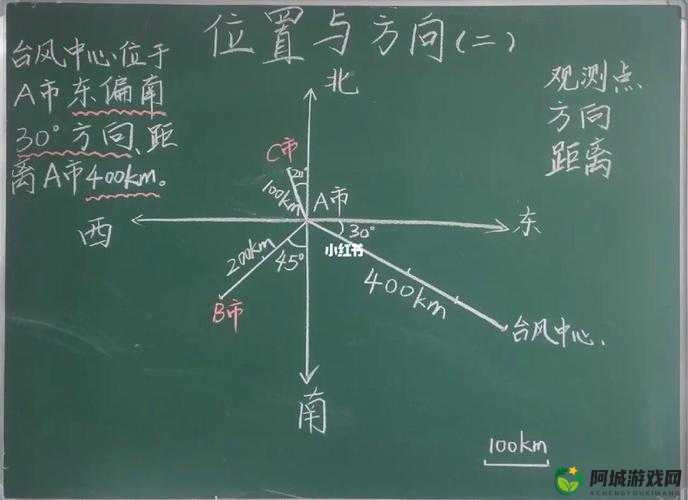 位置与方向(二)
台风中心位于
A市东偏南
30°方向、距
离A市400km。
观测点
方向
距离
北
C市
20°
100km
A市
西
东
30°
小红书
200km
45°
400km
B市
台风中心.
南
100km
阿城游戏网
ACHENGYOUXIWANG